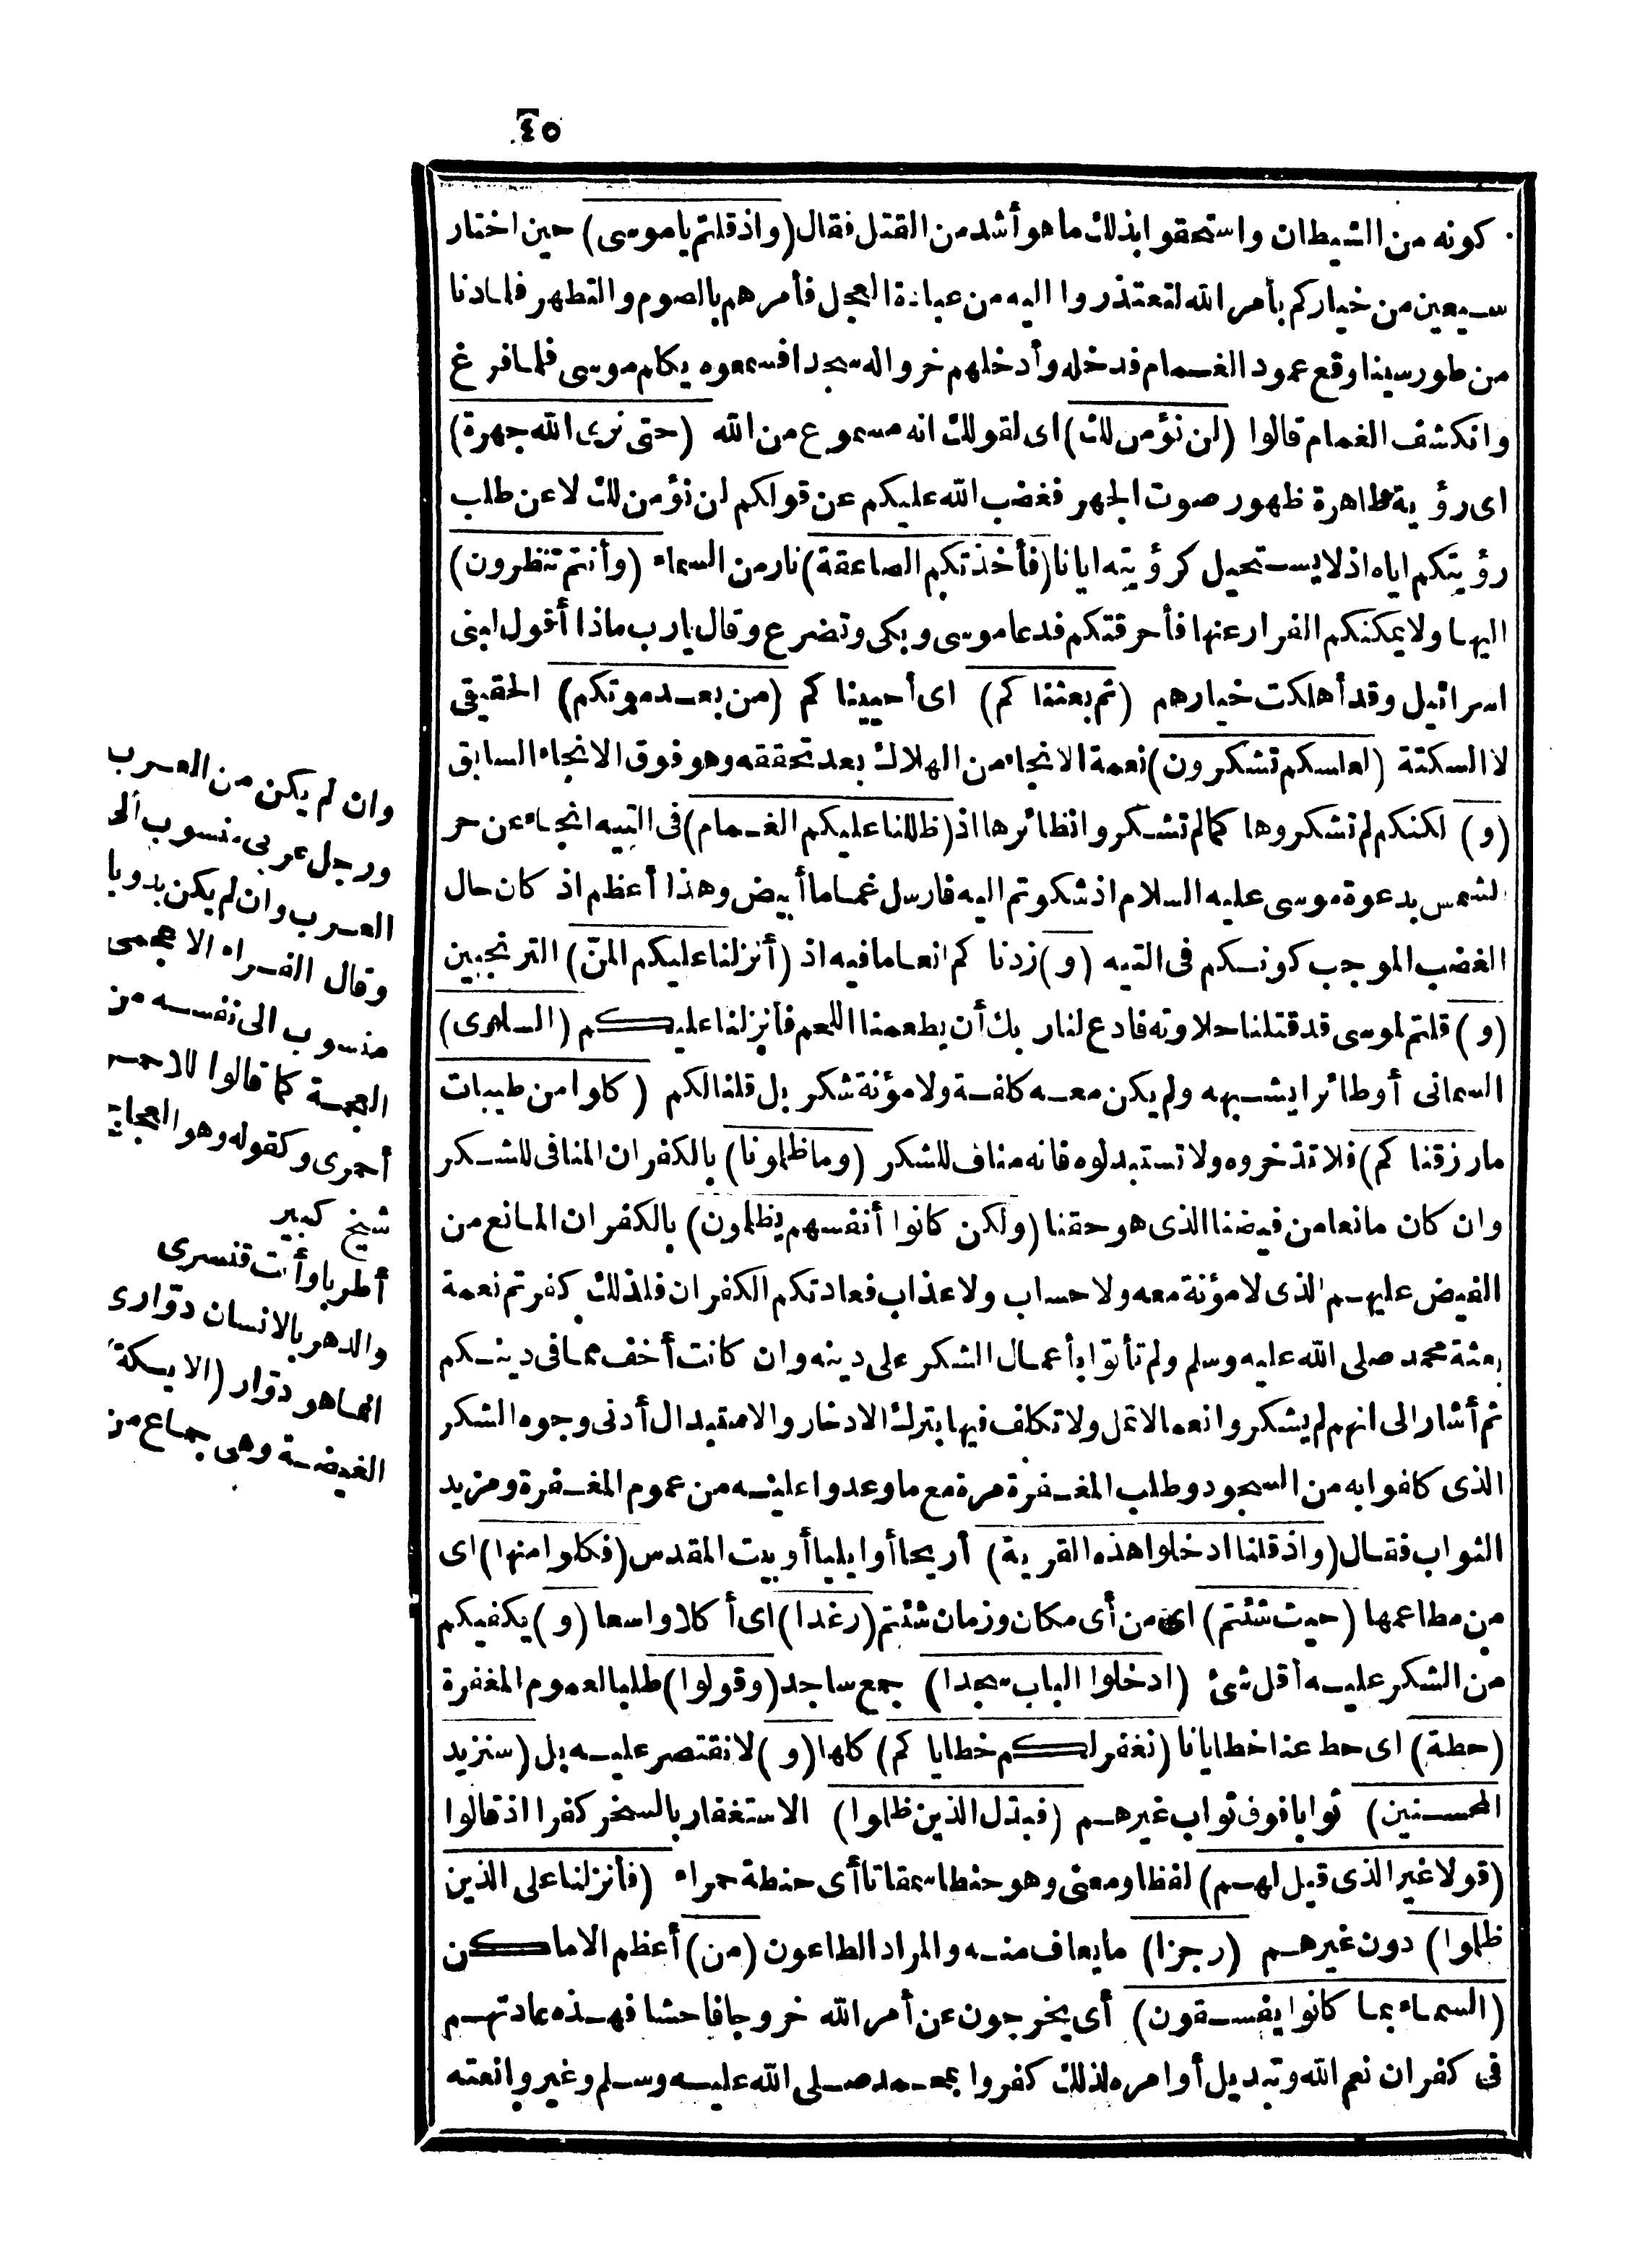 ٤٥
كونه من الشيطان واستحقوا بذلك ما هو أشد من القتل فقال (واذ قلتم ياموسى) حين اختار
سبعين من خياركم بأمر الله لتعتذروا اليه من عبادة العجل فأمرهم بالصوم والتطهر فلما دنا
من طور سينا وقع عمود الغمام فدخله وأدخلهم خروا له سجدا فسمعوه يكلم موسى فلما فرغ
وانكشف الغمام قالوا (لن نؤمن لك) اى لقولك انه مسموع من الله (حتى نرى الله جهرة)
اى رؤية ظاهرة ظهور صوت الجهر فغضب الله عليكم عن قولكم لن نؤمن لك لا عن طلب
رؤيتكم اياه اذ لا يستحيل كرؤيته ايانا (فأخذتكم الصاعقة) نار من السماء (وأنتم تنظرون)
اليها ولا يمكنكم الفرار عنها فأحرقتكم فدعا موسى وبكى وتضرع وقال يارب ماذا أقول لبنى
اسرائيل وقد أهلكت خيارهم (ثم بعثنا كم) اى أحيينا كم (من بعد موتكم) الحقيقى
لا السكتة (لعلكم تشكرون) نعمة الانجاء من الهلاك بعد تحققه وهو فوق الانجاء السابق
(و) لكنكم لم تشكروها كما لم تشكروا نظائرها اذ (ظللنا عليكم الغمام) فى التيه انجاء عن حر
لشمس بدعوة موسى عليه السلام اذ شكوتم اليه فارسل غماما أبيض وهذا أعظم اذ كان حال
الغضب الموجب كونكم فى التيه (و) زدنا كم انعاما فيه اذ (أنزلنا عليكم المنّ) الترنجبين
(و) قلتم لموسى قد قتلنا حلاوته فادع لنا ربك أن يطعمنا اللحم فأنزلنا عليكم (السلوى)
السمانى أوطائرا يشبهه ولم يكن معه كلفة ولا مؤنة شكر بل قلنا لكم (كلوا من طيبات
ما رزقنا كم) فلا تذخروه ولا تستبدلوه فانه مناف للشكر (وما ظلمونا) بالكفران المنافى للشكر
وان كان مانعا من فيضنا الذى هو حقنا (ولكن كانوا أنفسهم يظلمون) بالكفران المانع من
الفيض عليهم الذى لا مؤنة معه ولا حساب ولا عذاب فعادتكم الكفران فلذلك كفرتم نعمة
بعثة محمد صلى الله عليه وسلم ولم تأتوا بأعمال الشكر على دينه وان كانت أخف مما فى دينكم
ثم أشار الى انهم لم يشكروا نعما لا تمل ولا تكلف فيها بترك الادخار والاستبدال أدنى وجوه الشكر
الذى كلفوا به من السجود وطلب المغفرة مرة مع ما وعدوا عليه من عموم المغفرة ومزيد
الثواب فقال (واذ قلنا ادخلوا هذه القرية) أريحا أوايليا أو بيت المقدس (فكلوا منها) اى
من مطاعمها (حيث شئتم) اى من أى مكان وزمان شئتم (رغدا) اى أكلا واسعا (و) يكفيكم
من الشكر عليه أقل شئ (ادخلوا الباب سجدا) جمع ساجد (وقولوا) طلبا لعموم المغفرة
(حطة) اى حط عنا خطايانا (نغفر لكم خطايا كم) كلها (و) لا نقتصر عليه بل (سنزيد
المحسنين) ثوابا فوق ثواب غيرهم (فبدّل الذين ظلموا) الاستغفار بالسخر كفرا اذ قالوا
(قولا غير الذى قيل لهم) لفظا ومعنى وهو حنطا سمقاتا أى حنطة حمراء (فأنزلنا على الذين
ظلموا) دون غيرهم (رجزا) ما يعاف منه والمراد الطاعون (من) أعظم الاماكن
(السماء بما كانوا يفسقون) أى يخرجون عن أمر الله خروجا فاحشا فهذه عادتهم
فى كفران نعم الله وتبديل أوامره لذلك كفروا بمحمد صلى الله عليه وسلم وغيروا نعته
وان لم يكن من العرب
ورجل عربى منسوب الى
العرب وان لم يكن بدويا
وقال الفراء الاعجمى
منسوب الى نفسه من
العجمة كما قالوا للاحمر
أحمرى وكقوله وهو العجاج
شيخ كبير
أطربا وأنت قنسرى
والدهر بالانسان دوّارى
انما هو دوّار (الايكة)
الغيضة وهى جماع من